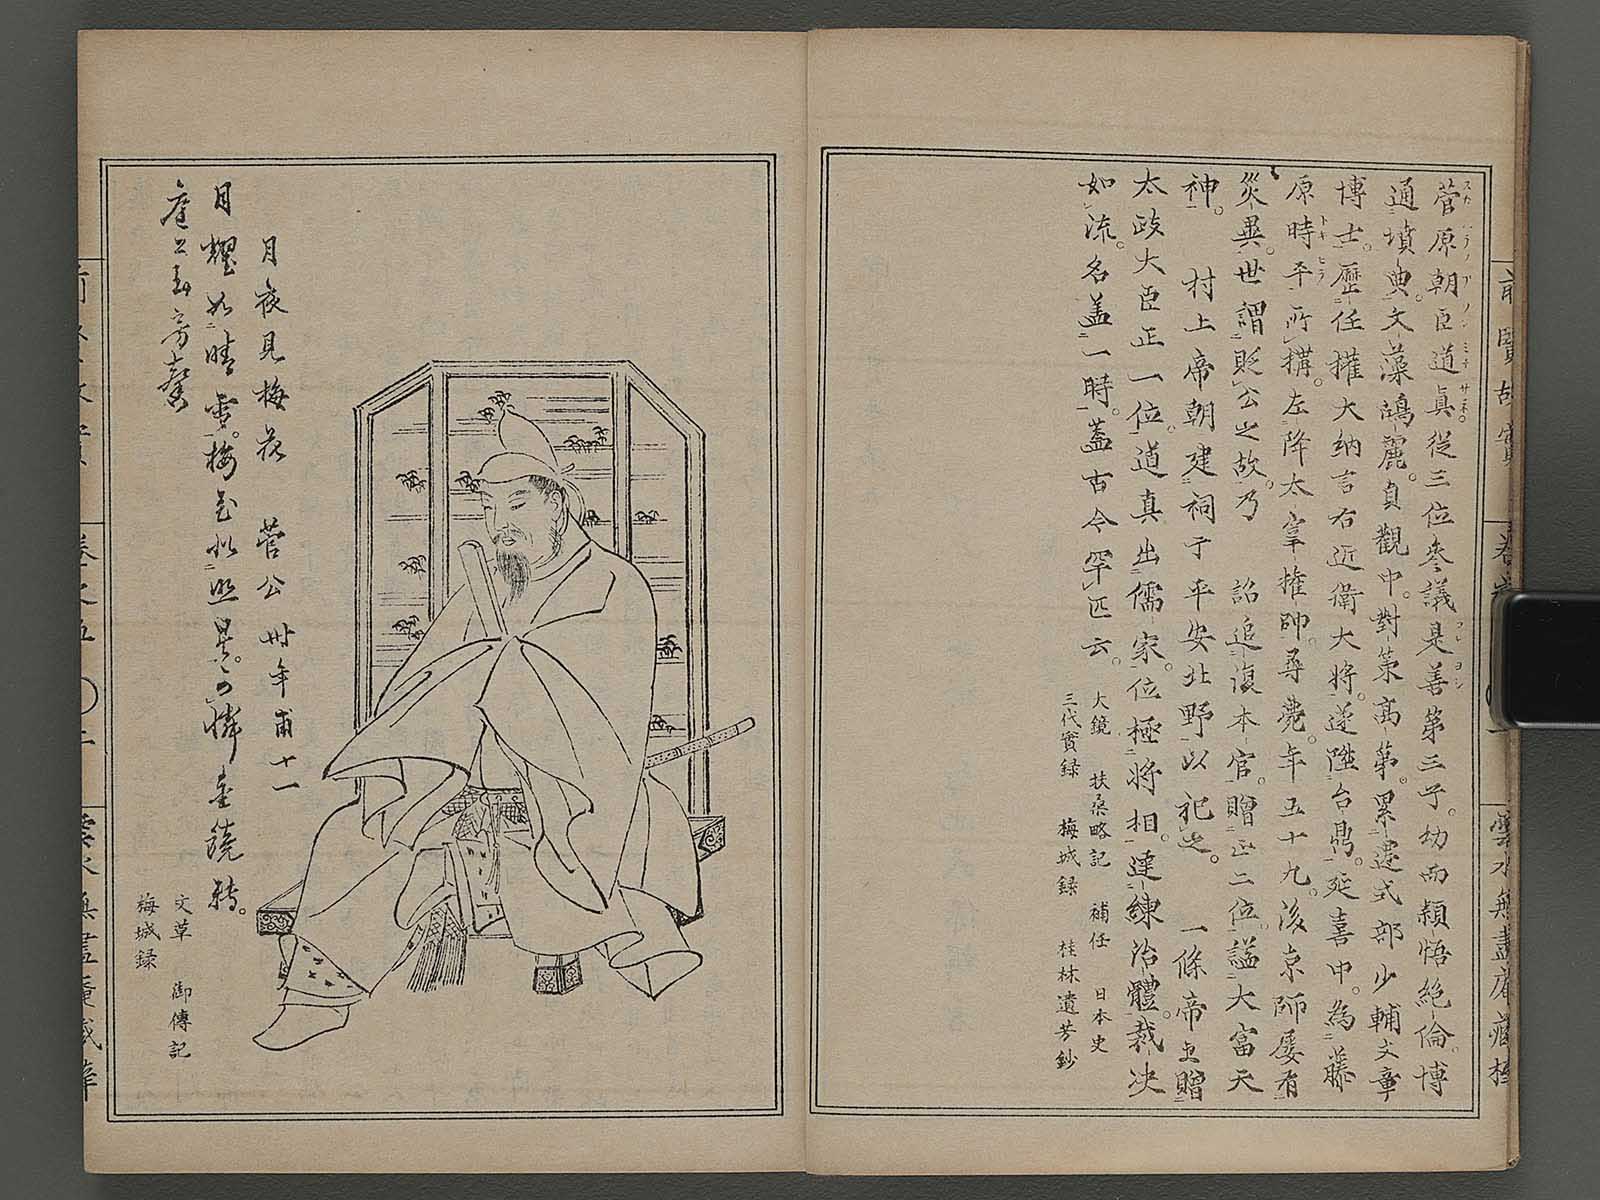 菅原朝臣道眞從三位參議是善第三子。幼而穎悟絶倫。博
通墳典。文藻鴻麗。貞觀中。對策高第。累遷式部少輔文章
博士。歷任權大納言右近衛大將。遂陞台鼎。延喜中。為藤
原時平所構。左降太宰權帥。尋薨。年五十九。後京師屡有
災異。世謂貶公之故。乃 詔追復本官。贈正二位。謚大富天
神。 村上帝朝建祠于平安北野以祀之。 一條帝立贈
太政大臣正一位。道真出儒家。位極將相。達練治體。裁决
如流。名蓋一時。蓋古今罕匹云。
大鏡 扶桑略記 補任 日本史
三代實録 梅城録 桂林遺芳鈔
前賢故實
雲水無盡庵藏
月夜見梅花 菅公 卅年甫十一
月耀如晴雪。梅花似照星。可憐金鏡轉。
庭上玉房馨
文草 御傳記
梅城録
卷之五 〇二